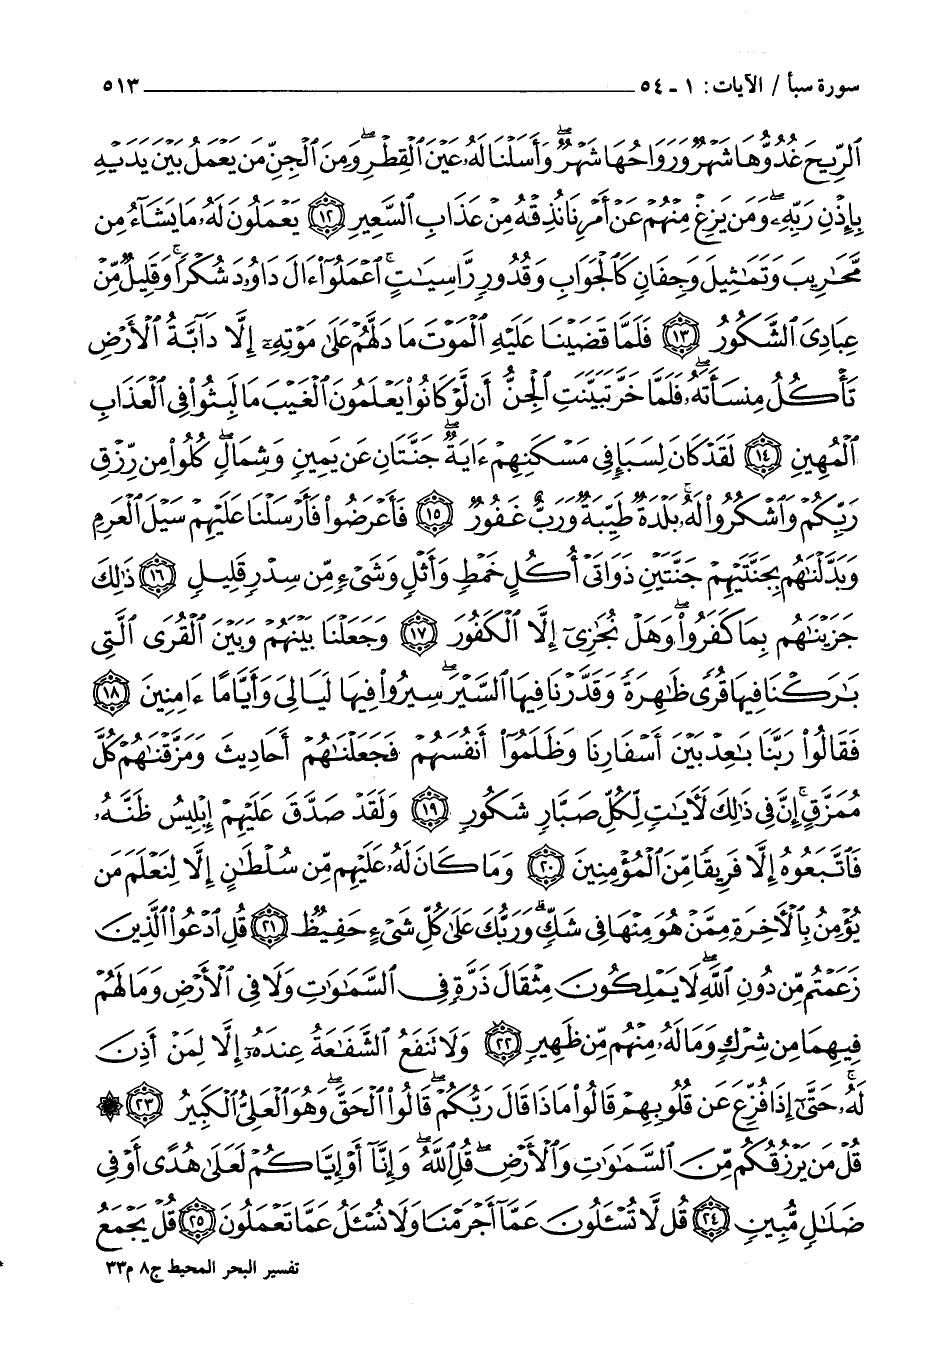 سورة سبأ / الآيات: ١ - ٥٤ ٥١٣
ٱلرِّيحَ غُدُوُّهَا شَهْرٌ وَرَوَاحُهَا شَهْرٌ ۖ وَأَسَلْنَا لَهُۥ عَيْنَ ٱلْقِطْرِ ۖ وَمِنَ ٱلْجِنِّ مَن يَعْمَلُ بَيْنَ يَدَيْهِ
بِإِذْنِ رَبِّهِۦ ۖ وَمَن يَزِغْ مِنْهُمْ عَنْ أَمْرِنَا نُذِقْهُ مِنْ عَذَابِ ٱلسَّعِيرِ ١٢ يَعْمَلُونَ لَهُۥ مَا يَشَآءُ مِن
مَّحَٰرِيبَ وَتَمَٰثِيلَ وَجِفَانٍ كَٱلْجَوَابِ وَقُدُورٍ رَّاسِيَٰتٍ ۚ ٱعْمَلُوٓا۟ ءَالَ دَاوُۥدَ شُكْرًا ۚ وَقَلِيلٌ مِّنْ
عِبَادِىَ ٱلشَّكُورُ ١٣ فَلَمَّا قَضَيْنَا عَلَيْهِ ٱلْمَوْتَ مَا دَلَّهُمْ عَلَىٰ مَوْتِهِۦٓ إِلَّا دَآبَّةُ ٱلْأَرْضِ
تَأْكُلُ مِنسَأَتَهُۥ ۖ فَلَمَّا خَرَّ تَبَيَّنَتِ ٱلْجِنُّ أَن لَّوْ كَانُوا۟ يَعْلَمُونَ ٱلْغَيْبَ مَا لَبِثُوا۟ فِى ٱلْعَذَابِ
ٱلْمُهِينِ ١٤ لَقَدْ كَانَ لِسَبَإٍ فِى مَسْكَنِهِمْ ءَايَةٌ ۖ جَنَّتَانِ عَن يَمِينٍ وَشِمَالٍ ۖ كُلُوا۟ مِن رِّزْقِ
رَبِّكُمْ وَٱشْكُرُوا۟ لَهُۥ ۚ بَلْدَةٌ طَيِّبَةٌ وَرَبٌّ غَفُورٌ ١٥ فَأَعْرَضُوا۟ فَأَرْسَلْنَا عَلَيْهِمْ سَيْلَ ٱلْعَرِمِ
وَبَدَّلْنَٰهُم بِجَنَّتَيْهِمْ جَنَّتَيْنِ ذَوَاتَىْ أُكُلٍ خَمْطٍ وَأَثْلٍ وَشَىْءٍ مِّن سِدْرٍ قَلِيلٍ ١٦ ذَٰلِكَ
جَزَيْنَٰهُم بِمَا كَفَرُوا۟ ۖ وَهَلْ نُجَٰزِىٓ إِلَّا ٱلْكَفُورَ ١٧ وَجَعَلْنَا بَيْنَهُمْ وَبَيْنَ ٱلْقُرَى ٱلَّتِى
بَٰرَكْنَا فِيهَا قُرًى ظَٰهِرَةً وَقَدَّرْنَا فِيهَا ٱلسَّيْرَ ۖ سِيرُوا۟ فِيهَا لَيَالِىَ وَأَيَّامًا ءَامِنِينَ ١٨
فَقَالُوا۟ رَبَّنَا بَٰعِدْ بَيْنَ أَسْفَارِنَا وَظَلَمُوٓا۟ أَنفُسَهُمْ فَجَعَلْنَٰهُمْ أَحَادِيثَ وَمَزَّقْنَٰهُمْ كُلَّ
مُمَزَّقٍ ۚ إِنَّ فِى ذَٰلِكَ لَءَايَٰتٍ لِّكُلِّ صَبَّارٍ شَكُورٍ ١٩ وَلَقَدْ صَدَّقَ عَلَيْهِمْ إِبْلِيسُ ظَنَّهُۥ
فَٱتَّبَعُوهُ إِلَّا فَرِيقًا مِّنَ ٱلْمُؤْمِنِينَ ٢٠ وَمَا كَانَ لَهُۥ عَلَيْهِم مِّن سُلْطَٰنٍ إِلَّا لِنَعْلَمَ مَن
يُؤْمِنُ بِٱلْءَاخِرَةِ مِمَّنْ هُوَ مِنْهَا فِى شَكٍّ ۗ وَرَبُّكَ عَلَىٰ كُلِّ شَىْءٍ حَفِيظٌ ٢١ قُلِ ٱدْعُوا۟ ٱلَّذِينَ
زَعَمْتُم مِّن دُونِ ٱللَّهِ ۖ لَا يَمْلِكُونَ مِثْقَالَ ذَرَّةٍ فِى ٱلسَّمَٰوَٰتِ وَلَا فِى ٱلْأَرْضِ وَمَا لَهُمْ
فِيهِمَا مِن شِرْكٍ وَمَا لَهُۥ مِنْهُم مِّن ظَهِيرٍ ٢٢ وَلَا تَنفَعُ ٱلشَّفَٰعَةُ عِندَهُۥٓ إِلَّا لِمَنْ أَذِنَ
لَهُۥ ۚ حَتَّىٰٓ إِذَا فُزِّعَ عَن قُلُوبِهِمْ قَالُوا۟ مَاذَا قَالَ رَبُّكُمْ ۖ قَالُوا۟ ٱلْحَقَّ ۖ وَهُوَ ٱلْعَلِىُّ ٱلْكَبِيرُ ٢٣ ۞
قُلْ مَن يَرْزُقُكُم مِّنَ ٱلسَّمَٰوَٰتِ وَٱلْأَرْضِ ۖ قُلِ ٱللَّهُ ۖ وَإِنَّآ أَوْ إِيَّاكُمْ لَعَلَىٰ هُدًى أَوْ فِى
ضَلَٰلٍ مُّبِينٍ ٢٤ قُل لَّا تُسْـَٔلُونَ عَمَّآ أَجْرَمْنَا وَلَا نُسْـَٔلُ عَمَّا تَعْمَلُونَ ٢٥ قُلْ يَجْمَعُ
تفسير البحر المحيط ج٨ م٣٣